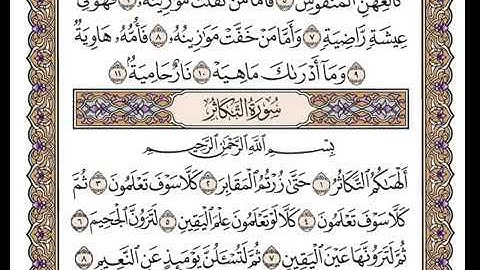 كَالْعِهْنِ الْمَنفُوشِ ٥ فَأَمَّا مَن ثَقُلَتْ مَوَازِينُهُ ٦ فَهُوَ فِي
عِيشَةٍ رَّاضِيَةٍ ٧ وَأَمَّا مَنْ خَفَّتْ مَوَازِينُهُ ٨ فَأُمُّهُ هَاوِيَةٌ
٩ وَمَا أَدْرَىٰكَ مَا هِيَهْ ١٠ نَارٌ حَامِيَةٌ ١١
سُورَةُ التَّكَاثُرِ
بِسْمِ اللَّهِ الرَّحْمَٰنِ الرَّحِيمِ
أَلْهَىٰكُمُ التَّكَاثُرُ ١ حَتَّىٰ زُرْتُمُ الْمَقَابِرَ ٢ كَلَّا سَوْفَ تَعْلَمُونَ ٣ ثُمَّ
كَلَّا سَوْفَ تَعْلَمُونَ ٤ كَلَّا لَوْ تَعْلَمُونَ عِلْمَ الْيَقِينِ ٥ لَتَرَوُنَّ الْجَحِيمَ ٦
ثُمَّ لَتَرَوُنَّهَا عَيْنَ الْيَقِينِ ٧ ثُمَّ لَتُسْـَٔلُنَّ يَوْمَئِذٍ عَنِ النَّعِيمِ ٨